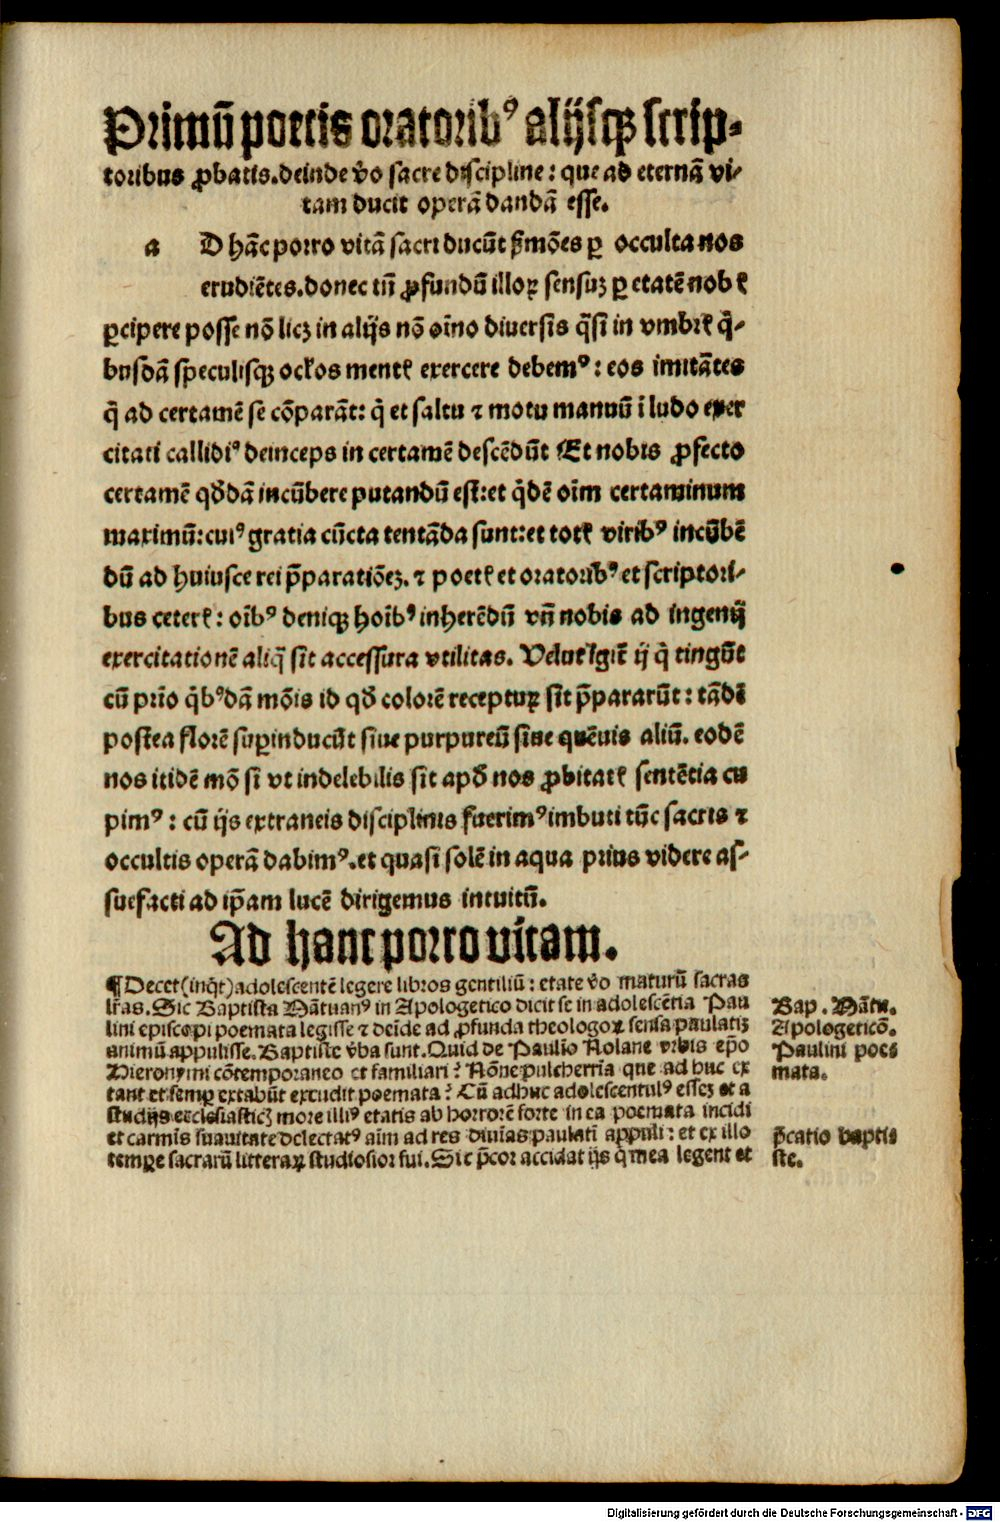 Primū poetis oratoribꝰ alijsqꝫ scrip-
toribus ꝓbatis. deinde v̄o sacre discipline: que ad eternā vi-
tam ducit operā dandā esse.
a D hāc porro vitā sacri ducūt ẜmōes ꝑ occulta nos
erudiētes. donec tn̄ ꝓfundū illoꝝ sensuꝫ ꝑ etatē nobꝭ
ꝑcipere posse nō licꝫ in alijs nō oīno diuersis q̄si in vmbrꝭ q̄-
busdā speculisqꝫ oc̄los mentꝭ exercere debemꝰ: eos imitātes
q̄ ad certamē se cōparāt: q̄ et saltu ⁊ motu manuū ī ludo exer
citati callidiꝰ deinceps in certamē descēdūt Et nobis ꝓfecto
certamē qd̄dā incūbere putandū est: et q̄dē oīm certaminum
maximū: cuiꝰ gratia cūcta tentāda sunt: et totꝭ viribꝰ incūbē
dū ad huiusce rei p̄paratiōeꝫ. ⁊ poetꝭ et oratoribꝰ et scriptori-
bus ceterꝭ: oībꝰ deniqꝫ hoībꝰ inherēdū vn̄ nobis ad ingenij
exercitationē aliq̄ sit accessura vtilitas. Velut igit̄ ij q̄ tingūt
cū prīo q̄bꝰdā mōis id qd̄ colorē recepturꝝ sit p̄pararūt: tādē
postea florē suꝑinducūt siue purpureū siue quēuis aliū. eodē
nos itidē mō si vt indelebilis sit apd̄ nos ꝓbitatꝭ sentētia cu
pimꝰ: cū ijs extraneis disciplinis fuerimꝰ imbuti tūc sacris ⁊
occultis operā dabimꝰ. et quasi solē in aqua prius videre as-
suefacti ad ip̄am lucē dirigemus intuitū.
Ad hanc porro vitam.
¶ Decet (inq̄t) adolescentē legere libros gentiliū: etate v̄o maturū sacras
lr̄as. Sic Baptista Mātuanꝰ in Apologetico dicit se in adolescētia Pau
lini episcopi poemata legisse ⁊ deīde ad ꝓfunda theologoꝝ sensa paulatiꝫ
animū appulisse. Baptiste v̄ba sunt. Quid de Paulio Nolane vrbis ep̄o
Hieronymi cōtemporaneo et familiari? Nōne pulcherria que ad huc ex
tant et semꝑ extabūt excudit poemata? Cū adhuc adolescentulꝰ esseꝫ et a
studijs ecclesiasticꝫ more illiꝰ etatis ab horrorē forte in ea poemata incidi
et carmīs suauitate delectatꝰ aīm ad res diuīas paulati appuli: et ex illo
tempore sacrarū litteraꝝ studiosior fui. Sic p̄cor accidat ijs q̄ mea legent et
Bap. Mātu.
Apologeticō.
Paulini poe
mata.
p̄catio baptis
ste.
Digitalisierung gefördert durch die Deutsche Forschungsgemeinschaft - DFG